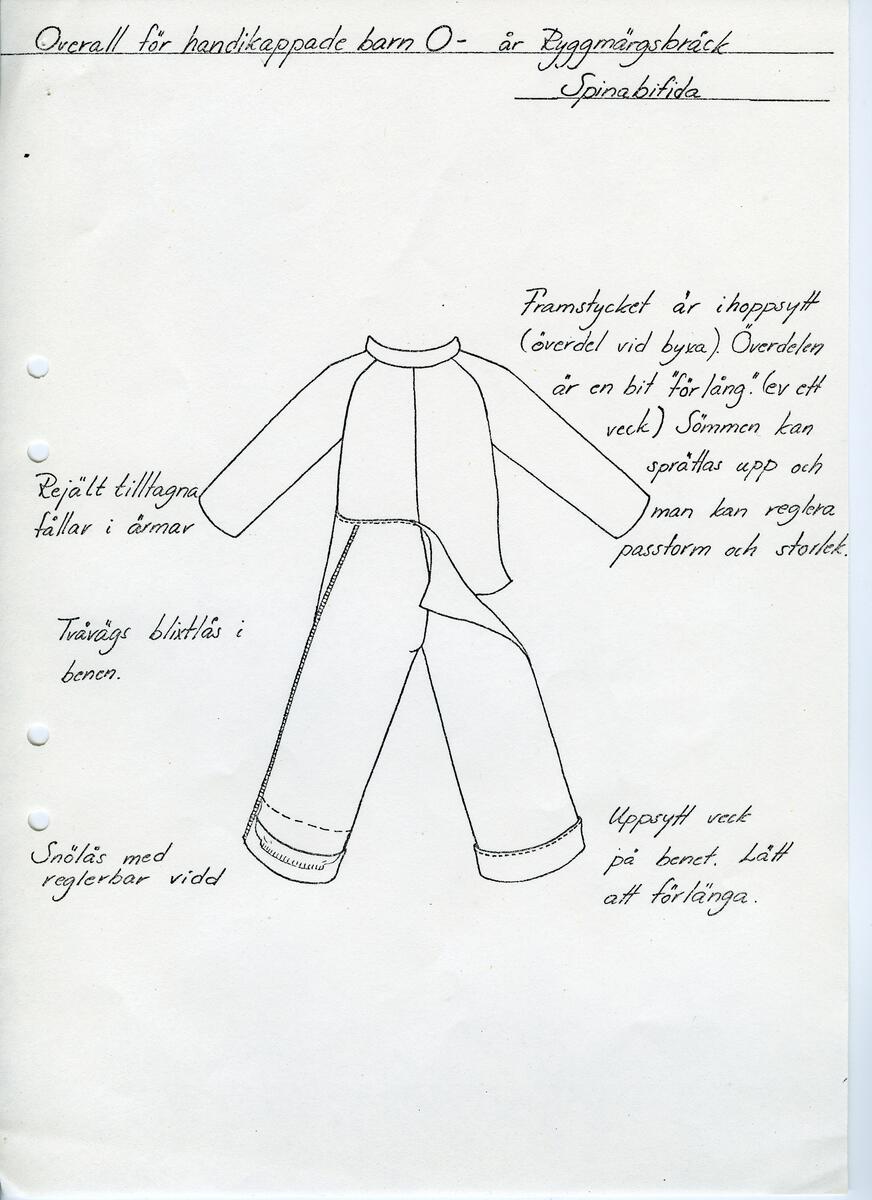 Overall för handikappade barn 0- år Ryggmärgsbråck
Spinabifida
Framstycket är ihoppsytt
(överdel vid byxa). Överdelen
är en bit "för lång". (ev ett
veck) Sömmen kan
sprättas upp och
man kan reglera
passform och storlek.
Rejält tilltagna
fållar i ärmar
Tvåvägs blixtlås i
benen.
Snölås med
reglerbar vidd
Uppsytt veck
på benet. Lätt
att förlänga.